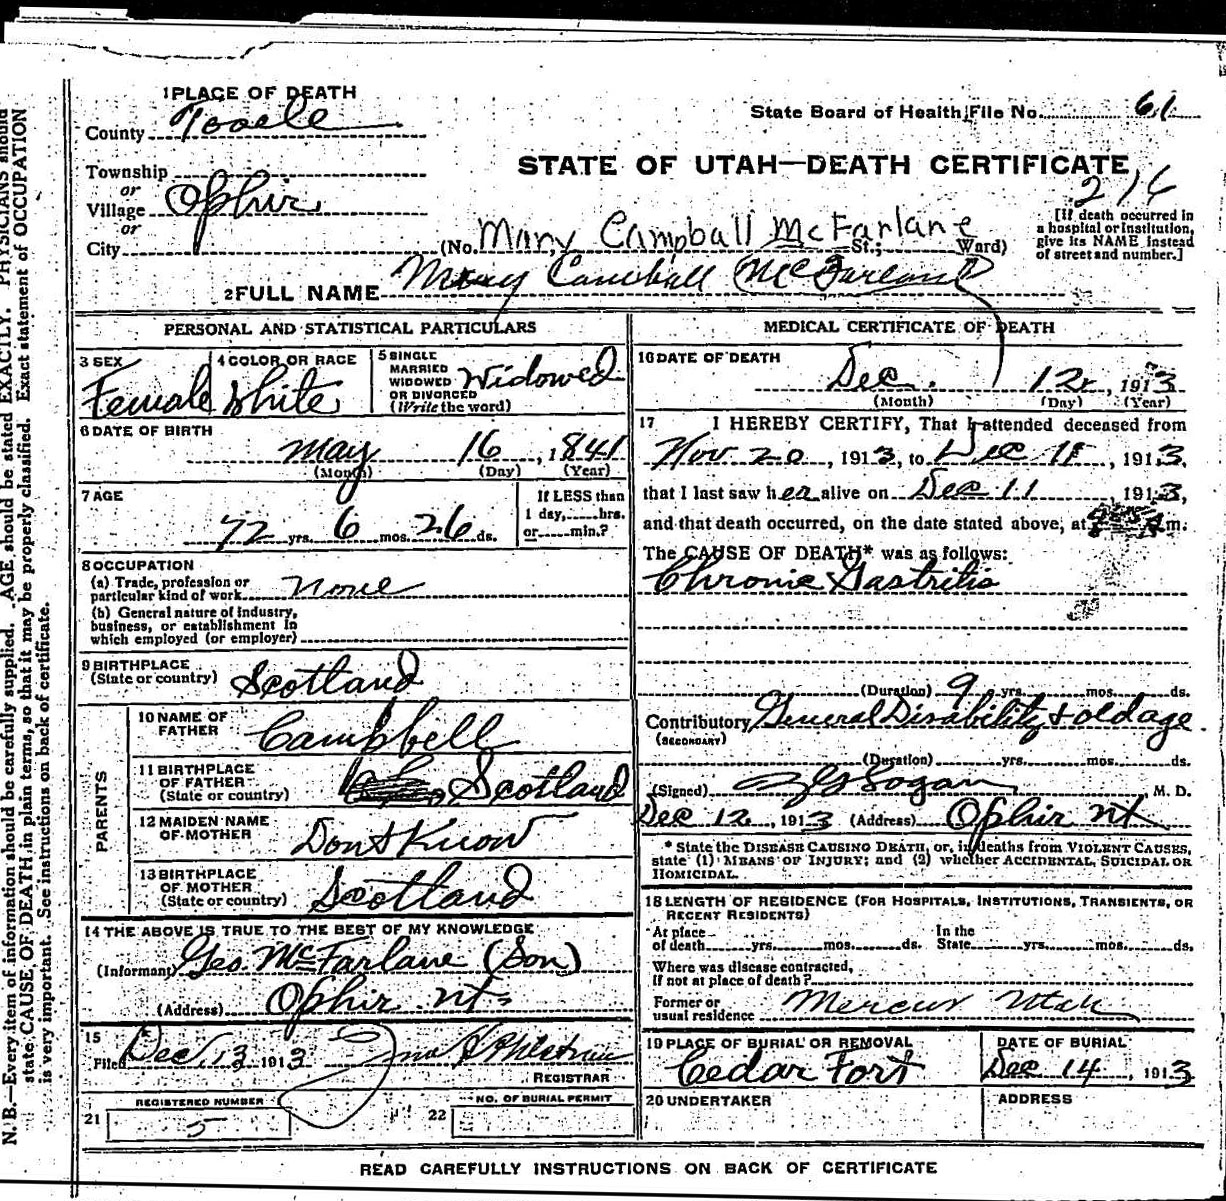 1 PLACE OF DEATH
County Tooele
State Board of Health File No. 61
STATE OF UTAH—DEATH CERTIFICATE
216
Township
or
Village Ophir
or
City
(No. Mary Campball McFarlane St.; Ward)
[If death occurred in
a hospital or institution,
give its NAME instead
of street and number.]
2 FULL NAME Mary Campball (McFarland)
PERSONAL AND STATISTICAL PARTICULARS
3 SEX Female
4 COLOR OR RACE White
5 SINGLE
MARRIED
WIDOWED
OR DIVORCED
(Write the word) Widowed
6 DATE OF BIRTH
May 16, 1841
(Month) (Day) (Year)
7 AGE
72 yrs. 6 mos. 26 ds.
If LESS than
1 day, hrs.
or min.?
8 OCCUPATION
(a) Trade, profession or
particular kind of work none
(b) General nature of industry,
business, or establishment in
which employed (or employer)
9 BIRTHPLACE
(State or country) Scotland
PARENTS
10 NAME OF
FATHER Campbell
11 BIRTHPLACE
OF FATHER
(State or country) Scotland
12 MAIDEN NAME
OF MOTHER Dont Know
13 BIRTHPLACE
OF MOTHER
(State or country) Scotland
14 THE ABOVE IS TRUE TO THE BEST OF MY KNOWLEDGE
(Informant) Geo. McFarlane (Son)
(Address) Ophir Ut
15
Filed Dec. 13 1913
REGISTRAR
REGISTERED NUMBER
21 5
NO. OF BURIAL PERMIT
22
MEDICAL CERTIFICATE OF DEATH
16 DATE OF DEATH
Dec. 12, 1913
(Month) (Day) (Year)
17 I HEREBY CERTIFY, That I attended deceased from
Nov 20, 1913, to Dec 11, 1913,
that I last saw her alive on Dec 11, 1913,
and that death occurred, on the date stated above, at m.
The CAUSE OF DEATH* was as follows:
Chronic Gastritis
(Duration) 9 yrs. mos. ds.
Contributory General Disability & old age
(SECONDARY)
(Duration) yrs. mos. ds.
(Signed) Logan M. D.
Dec 12, 1913 (Address) Ophir Ut
* State the DISEASE CAUSING DEATH, or, in deaths from VIOLENT CAUSES,
state (1) MEANS OF INJURY; and (2) whether ACCIDENTAL, SUICIDAL OR
HOMICIDAL.
18 LENGTH OF RESIDENCE (FOR HOSPITALS, INSTITUTIONS, TRANSIENTS, OR
RECENT RESIDENTS)
At place
of death yrs. mos. ds.
In the
State yrs. mos. ds.
Where was disease contracted,
If not at place of death?
Former or
usual residence Mercur Utah
19 PLACE OF BURIAL OR REMOVAL
Cedar Fort
DATE OF BURIAL
Dec 14, 1913
20 UNDERTAKER
ADDRESS
READ CAREFULLY INSTRUCTIONS ON BACK OF CERTIFICATE
N. B.—Every item of information should be carefully supplied. AGE should be stated EXACTLY. PHYSICIANS should
state CAUSE OF DEATH in plain terms, so that it may be properly classified. Exact statement of OCCUPATION
is very important. See instructions on back of certificate.